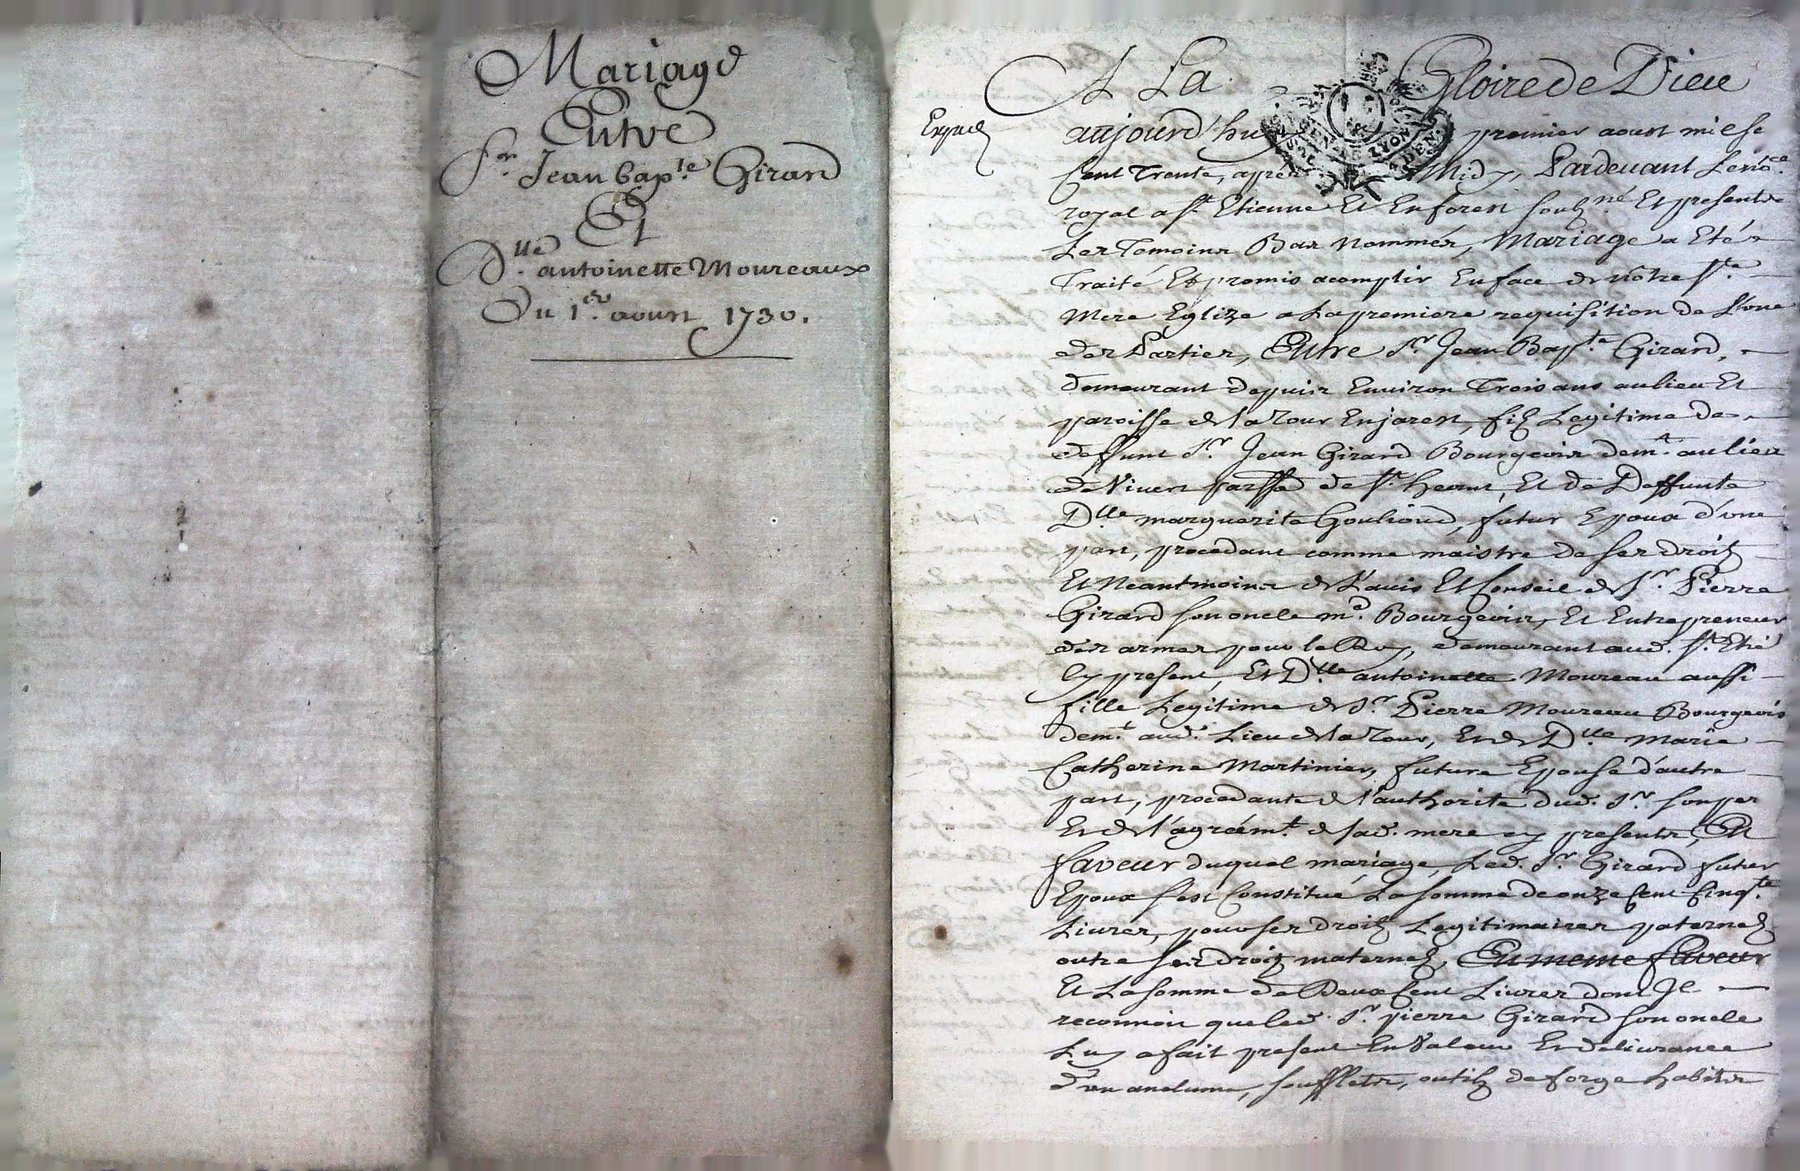 Mariage
Entre
Sr. Jean bapte. Girard
Et
Dlle. antoinette Moureaux
Du 1er. aoust 1730.
A La Gloire de Dieu
Exped
aujourd'huy premier aoust mil sept
Cent Trente, apres Midy, Pardevant Le nore.
royal a St. Etienne Et En forest Soubzné Et presents
Les Temoins Bas nommés, Mariage a Eté
Traité Et promis acomplir En face de notre Ste.
Mere Eglize a La premiere requisition de L'une
des Parties, Entre Sr. Jean Bapte. Girard,
demeurant depuis Environ Trois ans au lieu Et
paroisse de la Tour En jarest, filz Legitime de
deffunt Sr. Jean Girard Bourgeois demt. au lieu
de Vivert parsse de St. heant, Et de Deffunte
Dlle marguerite Goulioud, futur Epoux d'une
part, procedant comme maistre de ses droitz
Et Neantmoins de L'avis Et Conseil de Sr. Pierre
Girard son oncle md. Bourgeois, Et Entrepreneur
des armes pour le Roy, demeurant aud. St. Etié
Cy present, Et Dlle antoinette Moureau aussi
fille Legitime de Sr. Pierre Moureau Bourgeois
demt. aud. Lieu de la Tour, Et de Dlle Marie
Catherine Martinier, future Epouse d'autre
part, procedante de l'authorité dud. Sr. son per
Et de l'agréemt. de sad. mere cy presents, En
faveur duquel mariage, Led. Sr. Girard futur
Epoux s'est Constitué La somme de onze Cent Cinqte.
Livres, pour ses droitz Legitimaires paternelz
outre ses droitz maternelz, En meme faveur
Et La somme de Deux Cent Livres dont Il
reconnoit que led. Sr. pierre Girard son oncle
Luy a fait present En Valeur Et delivrance
d'un anclume, soufflets, outilz de forge habits